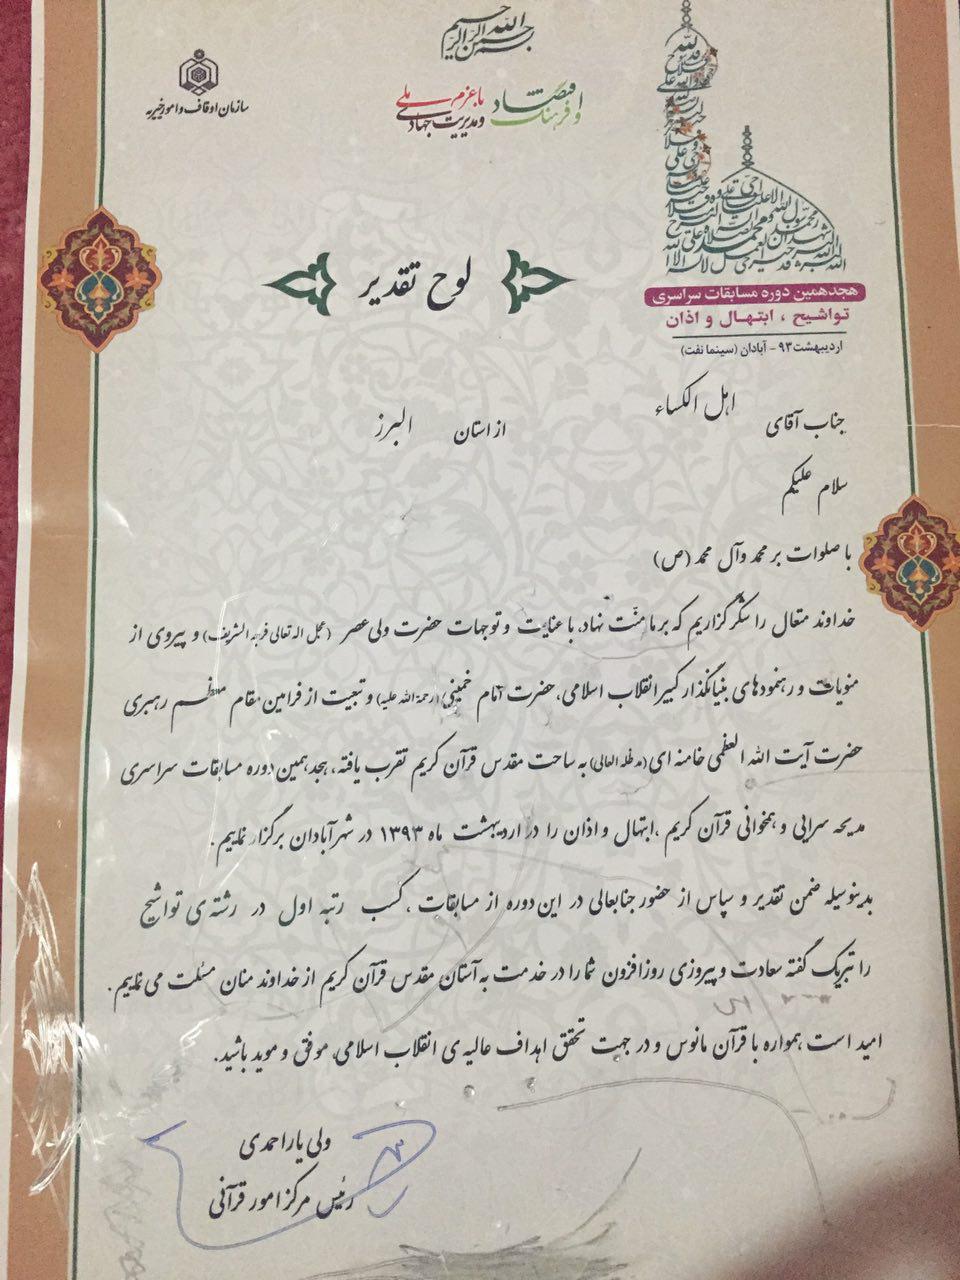 بسم الله الرحمن الرحیم
سازمان اوقاف و امور خیریه
اقتصاد و فرهنگ
با عزم ملی و مدیریت جهادی
هجدهمین دوره مسابقات سراسری
تواشیح ، ابتهال و اذان
اردیبهشت ۹۳ - آبادان (سینما نفت)
لوح تقدیر
جناب آقای اهل الکساء از استان البرز
سلام علیکم
با صلوات بر محمد وآل محمد (ص)
خداوند متعال را شکرگزاریم که بر ما منت نهاد، با عنایت و توجهات حضرت ولی عصر (عجل اله تعالی فرجه الشریف) و پیروی از
منویات و رهنمودهای بنیانگذار کبیر انقلاب اسلامی، حضرت امام خمینی (رحمة الله علیه) و تبعیت از فرامین مقام معظم رهبری
حضرت آیت الله العظمی خامنه ای (مد ظله العالی) به ساحت مقدس قرآن کریم تقرب یافته، هجدهمین دوره مسابقات سراسری
مدیحه سرایی و همخوانی قرآن کریم ،ابتهال و اذان را در اردیبهشت ماه ۱۳۹۳ در شهر آبادان برگزار نماییم.
بدینوسیله ضمن تقدیر و سپاس از حضور جنابعالی در این دوره از مسابقات ،کسب رتبه اول در رشته ی تواشیح
را تبریک گفته سعادت و پیروزی روزافزون شما را در خدمت به آستان مقدس قرآن کریم از خداوند منان مسئلت می نماییم.
امید است همواره با قرآن مانوس و در جهت تحقق اهداف عالیه ی انقلاب اسلامی، موفق و موید باشید.
ولی یاراحمدی
رئیس مرکز امور قرآنی